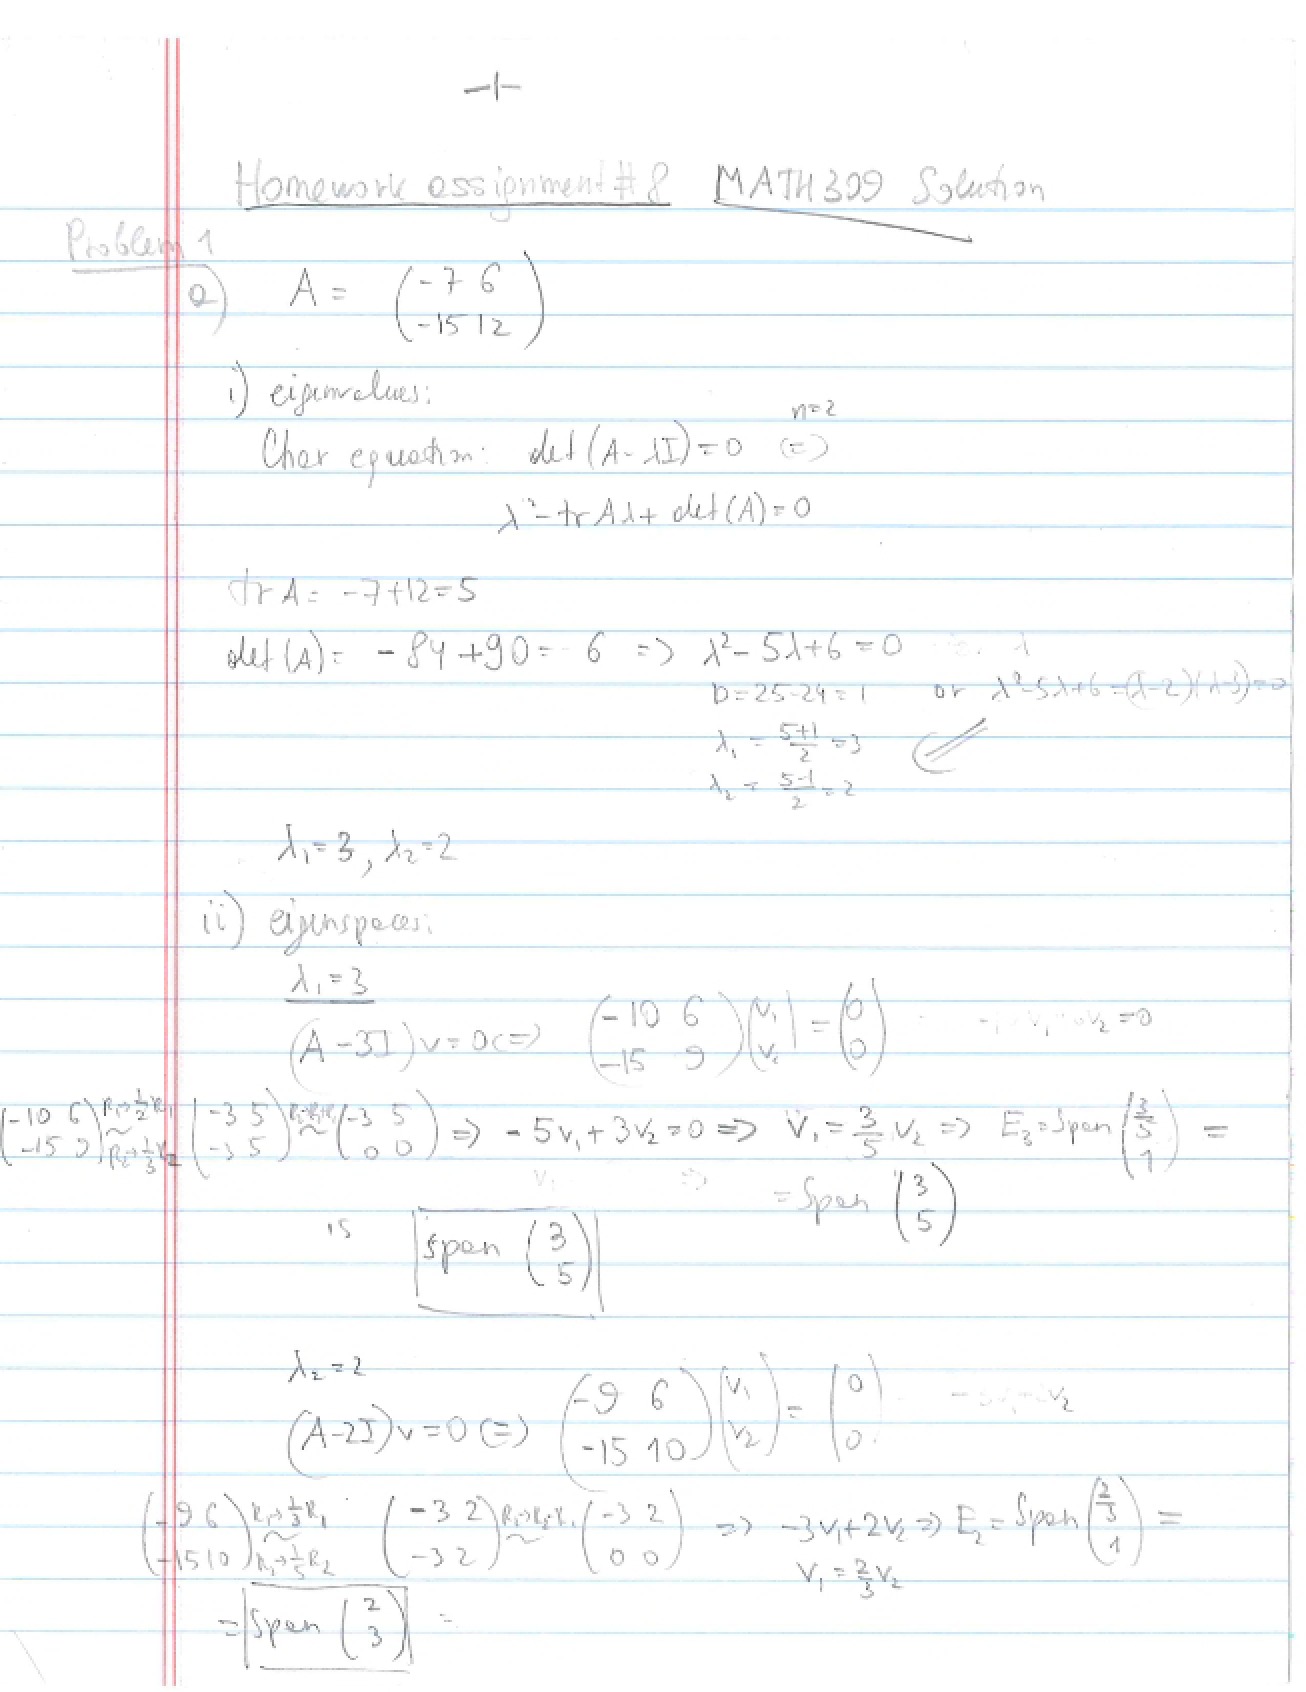 -1-
Homework assignment #8 MATH309 Solution
Problem 1
a) A = (-7 6
-15 12)
i) eigenvalues:
n=2
Char equation: det(A-λI)=0 (=)
λ²-trAλ+det(A)=0
trA= -7+12=5
det(A)= -84+90= 6 => λ²-5λ+6=0
D=25-24=1 or λ²-5λ+6=(λ-2)(λ-3)=0
λ₁ = 5+1/2 =3
λ₂ = 5-1/2 =2
λ₁=3, λ₂=2
ii) eigenspaces:
λ₁=3
(A-3I)v=0(=) (-10 6
-15 9)(v₁
v₂)=(0
0) v₂=0
(-10 6
-15 9) R₁→1/2R₁ ~ R₂→1/3R₂ (-3 5
-3 5) ~ (-3 5
0 0) => -5v₁+3v₂=0 => v₁=3/5 v₂ => E₃=Span(3/5
1) =
=Span (3
5)
is span (3
5)
λ₂=2
(A-2I)v=0(=) (-9 6
-15 10)(v₁
v₂)=(0
0)
(-9 6
-15 10) R₁→1/3R₁ ~ R₁→1/5R₂ (-3 2
-3 2) ~ (-3 2
0 0) => -3v₁+2v₂ => E₂=Span(2/3
1) =
v₁=2/3v₂
= Span (2
3) =